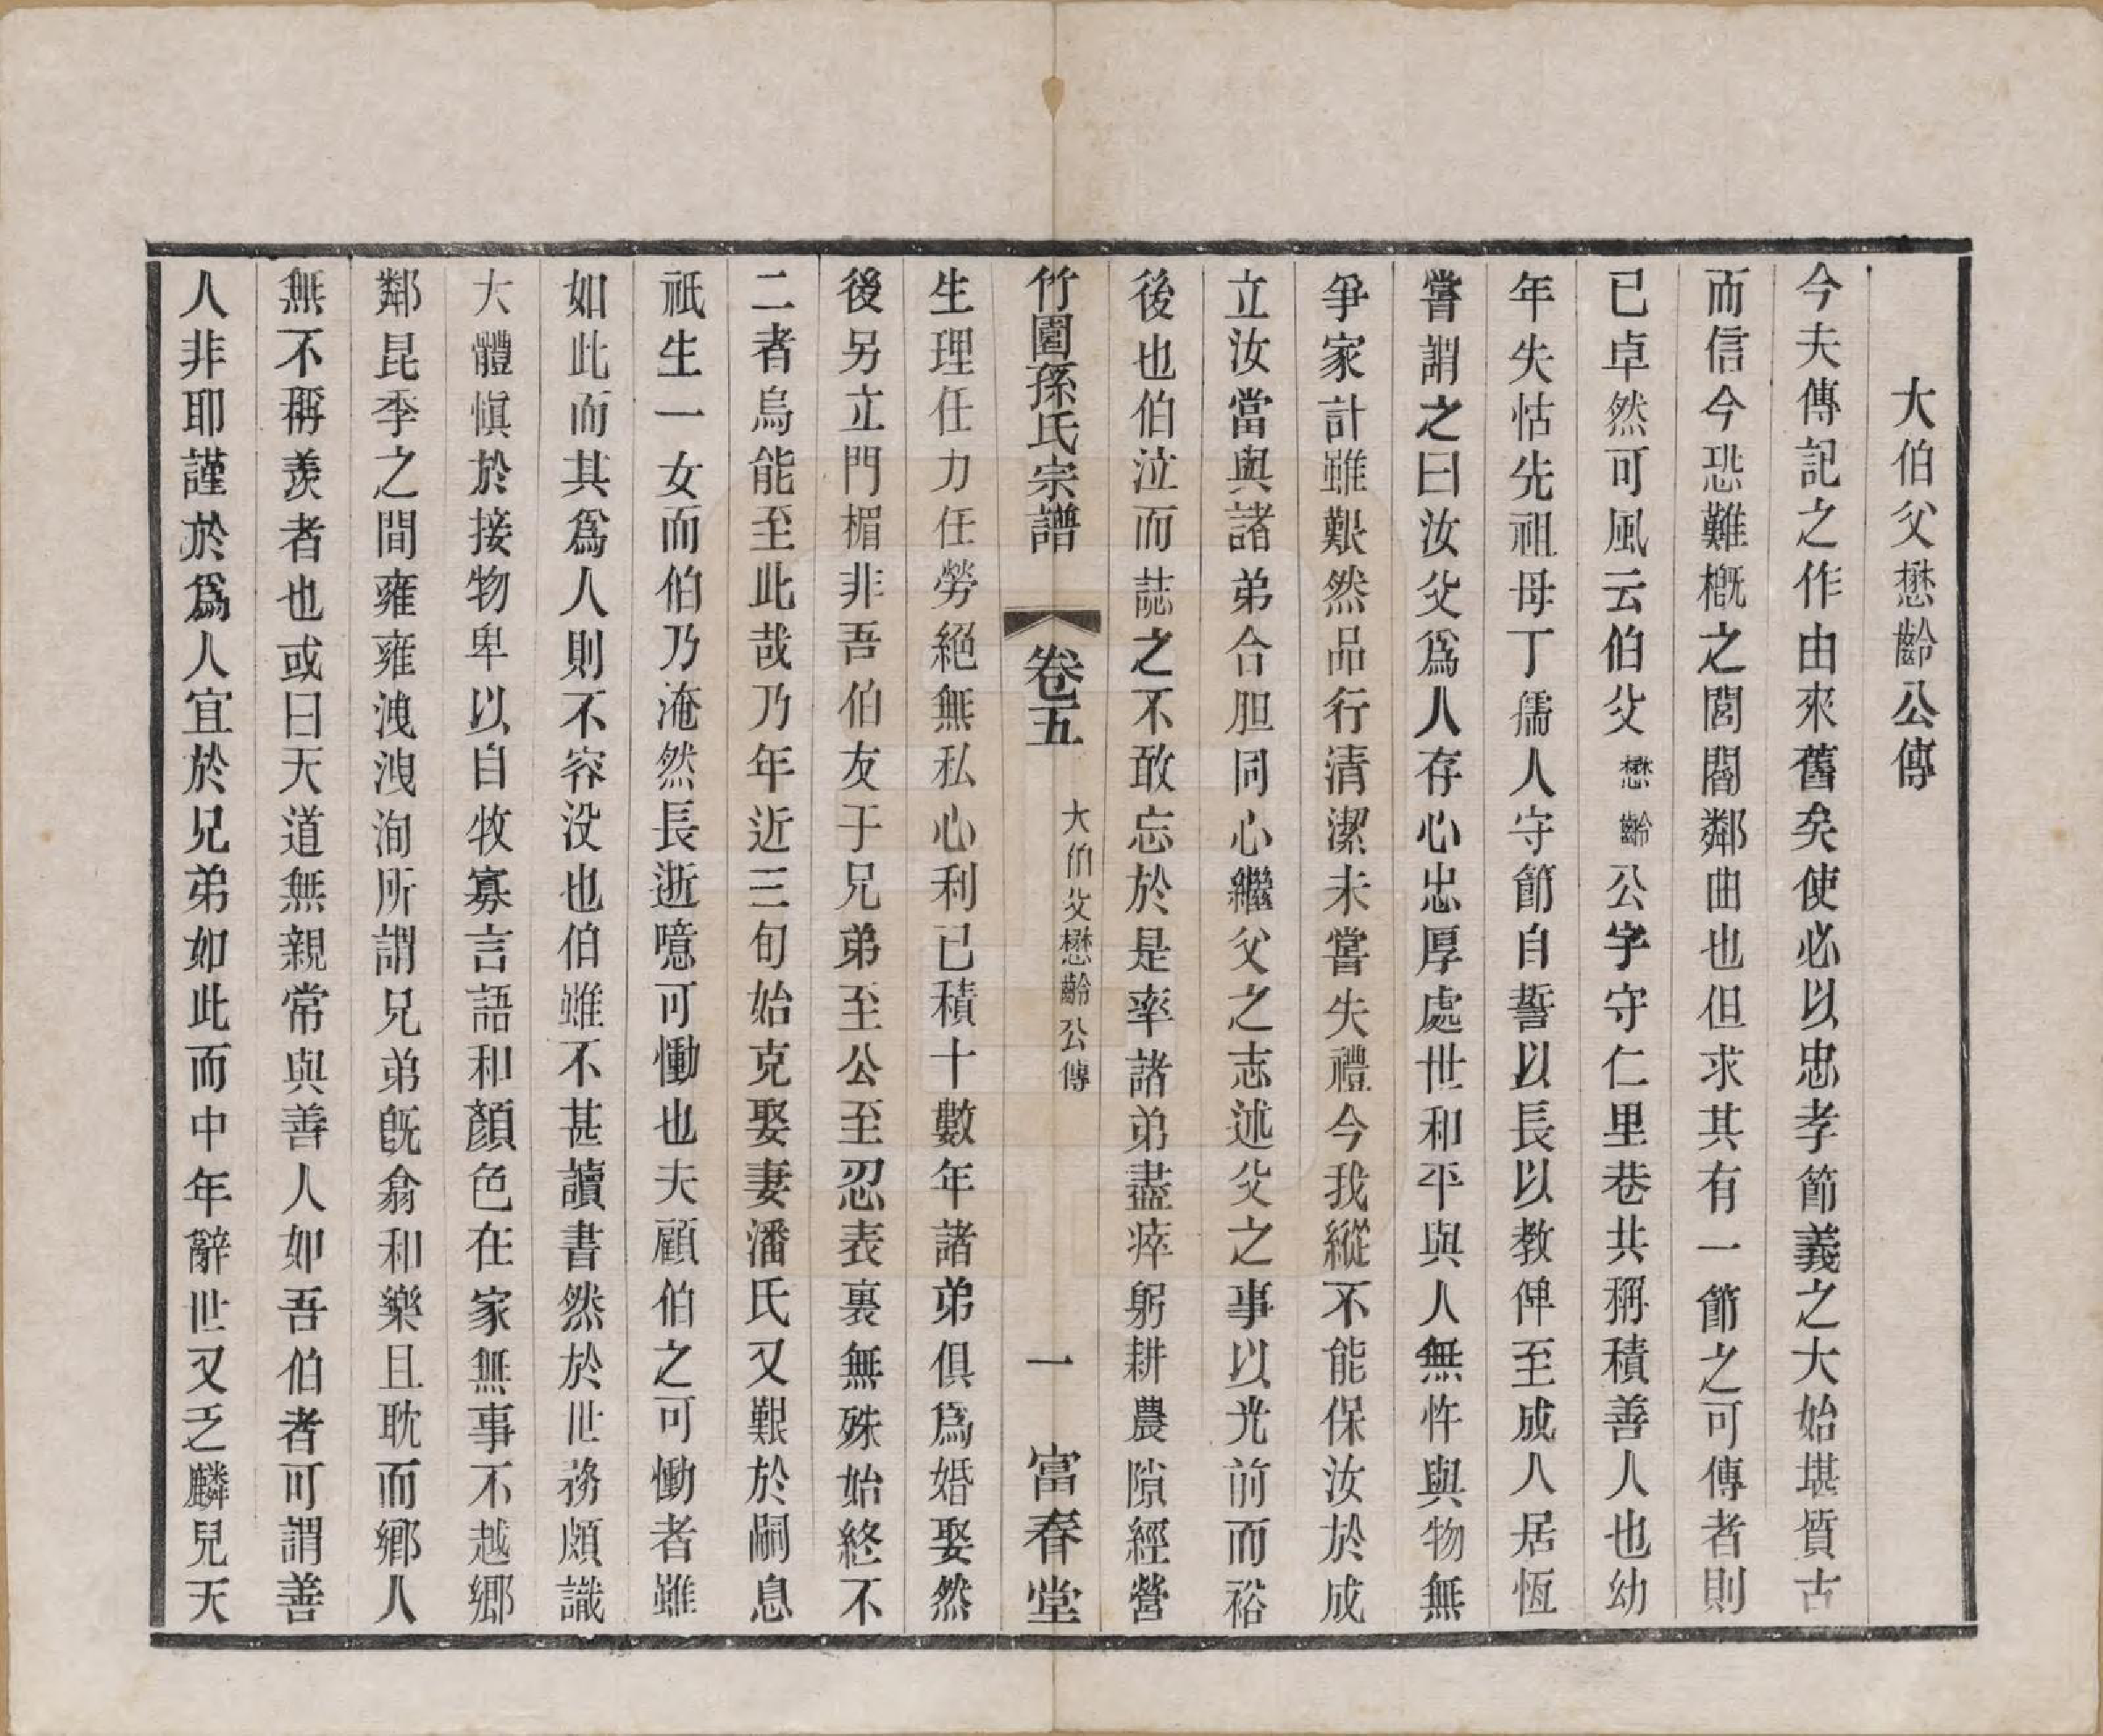 大伯父懋齡公傳
今夫傳記之作由來舊矣使必以忠孝節義之大始堪質古
而信今恐難概之閭閻鄰曲也但求其有一節之可傳者則
已卓然可風云伯父懋齡公字守仁里巷共稱積善人也幼
年失怙先祖母丁孺人守節自誓以長以教俾至成人居恆
嘗謂之曰汝父爲人存心忠厚處世和平與人無忤與物無
爭家計雖艱然品行清潔未嘗失禮今我縱不能保汝於成
立汝當與諸弟合胆同心繼父之志述父之事以光前而裕
後也伯泣而誌之不敢忘於是率諸弟盡瘁躬耕農隙經營
竹園孫氏宗譜 卷五 大伯父懋齡公傳 一 富春堂
生理任力任勞絕無私心利已積十數年諸弟俱爲婚娶然
後另立門楣非吾伯友于兄弟至公至忍表裏無殊始終不
二者烏能至此哉乃年近三旬始克娶妻潘氏又艱於嗣息
祇生一女而伯乃淹然長逝噫可慟也夫顧伯之可慟者雖
如此而其爲人則不容沒也伯雖不甚讀書然於世務頗識
大體愼於接物卑以自牧寡言語和顏色在家無事不越鄉
鄰昆季之間雍雍洩洩洵所謂兄弟旣翕和樂且耽而鄉人
無不稱羨者也或曰天道無親常與善人如吾伯者可謂善
人非耶謹於爲人宜於兄弟如此而中年辭世又乏麟兒天